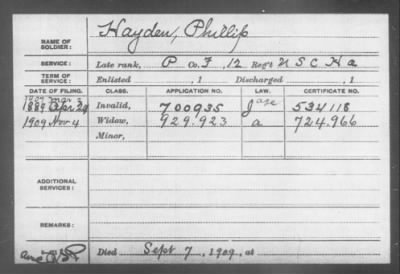 NAME OF SOLDIER: Hayden, Phillip
SERVICE: Late rank, P Co. F, 12 Reg't U S C H a
TERM OF SERVICE: Enlisted , 1 Discharged , 1
DATE OF FILING. CLASS. APPLICATION NO. LAW. CERTIFICATE NO.
1889 Apr 29 Invalid, 700935 534118
1909 Nov 4 Widow, 929.923 a 724.966
Minor,
ADDITIONAL SERVICES:
REMARKS:
Died Sept 7, 1909, at